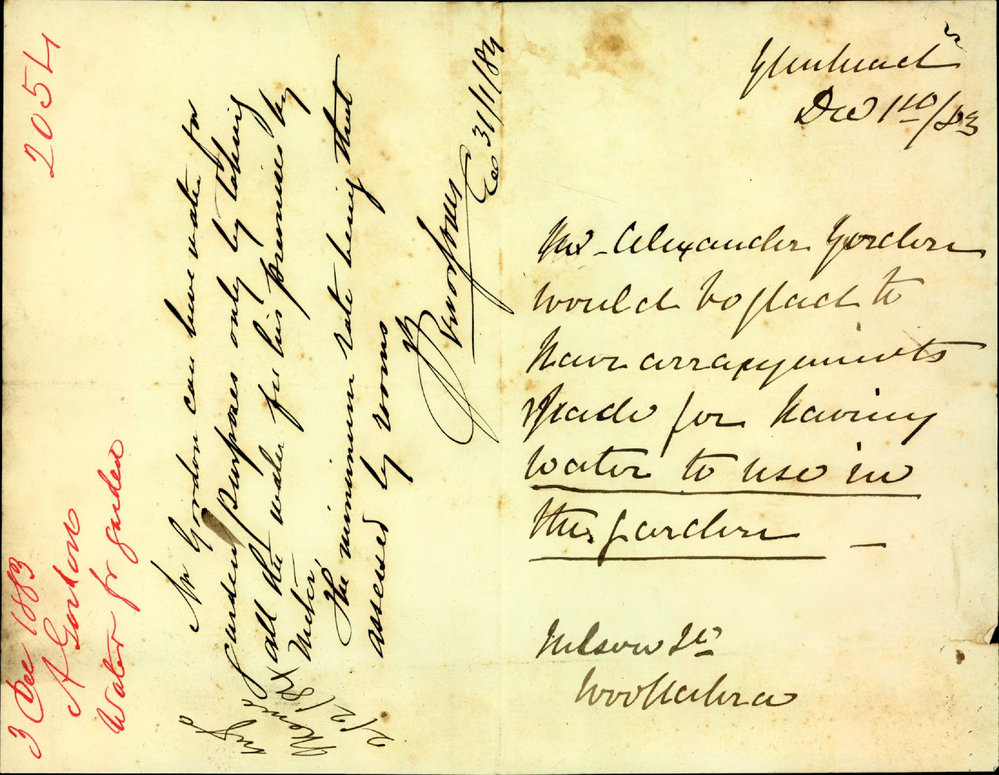 Dec 1st/83
Mr. Alexander Gordon
would be glad to
have arrangements
made for having
water to use in
the garden —
Nelson St
Woollahra
2054
3 Dec 1883
A Gordon
Water for garden
Mr Gordon can have water for
garden purposes only by taking
all the water for his premises by
Meter.
The minimum rate being that
assessed by rooms
31/1/84
2/2/84